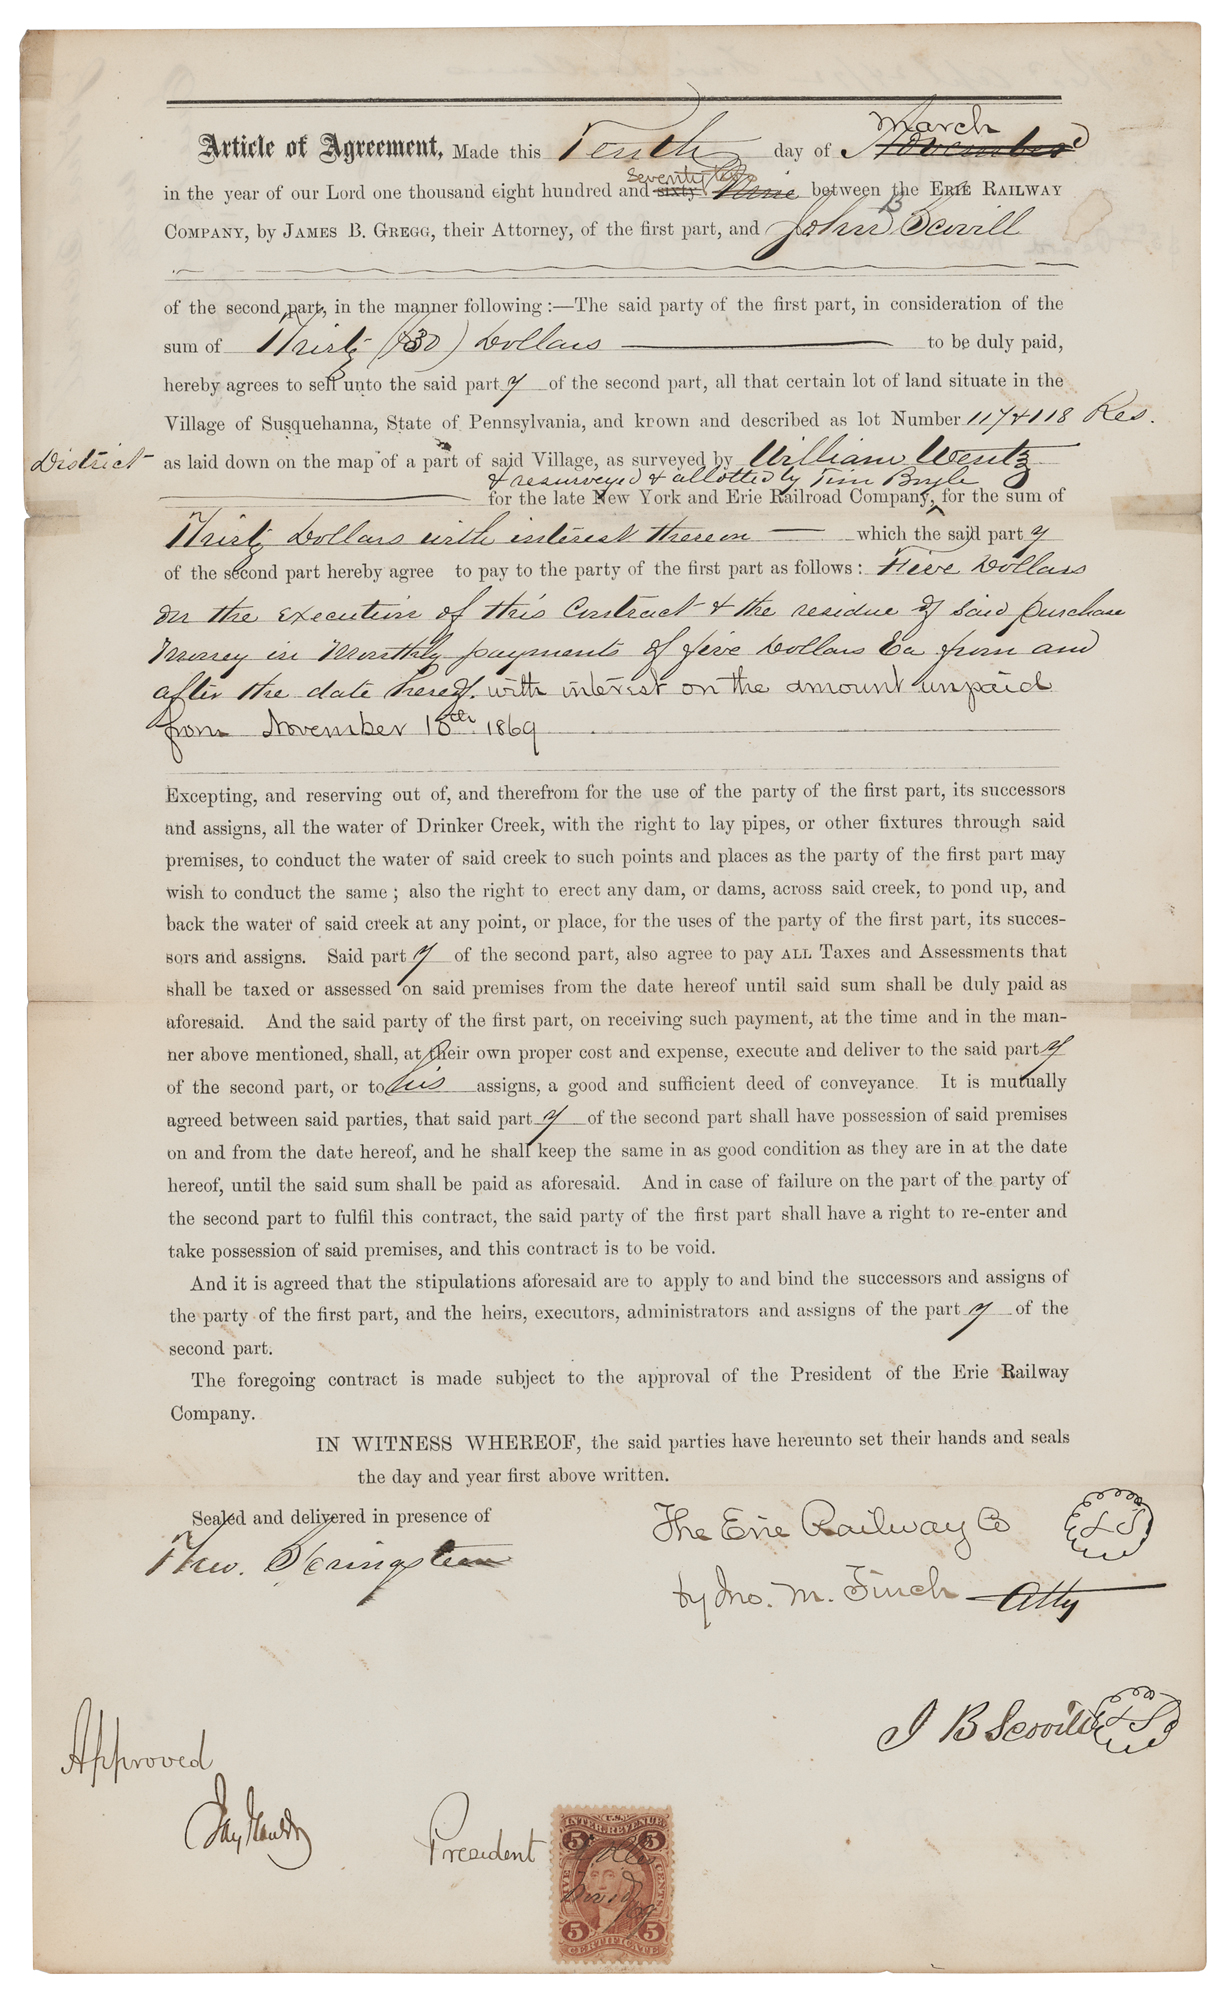 Article of Agreement, Made this Tenth day of March November
in the year of our Lord one thousand eight hundred and seventy two sixty Nine between the ERIE RAILWAY
COMPANY, by JAMES B. GREGG, their Attorney, of the first part, and John B Scovill
of the second part, in the manner following:—The said party of the first part, in consideration of the
sum of Thirty ($30) Dollars to be duly paid,
hereby agrees to sell unto the said party of the second part, all that certain lot of land situate in the
Village of Susquehanna, State of Pennsylvania, and known and described as lot Number 117 & 118 Res.
District as laid down on the map of a part of said Village, as surveyed by William Wentz
& resurveyed & allotted by Tim Boyle
for the late New York and Erie Railroad Company, for the sum of
Thirty Dollars with interest thereon which the said party
of the second part hereby agree to pay to the party of the first part as follows: Five Dollars
on the execution of this Contract & the residue of said purchase
money in Monthly payments of five Dollars Ea from and
after the date hereof. with interest on the amount unpaid
from November 10th 1869
Excepting, and reserving out of, and therefrom for the use of the party of the first part, its successors
and assigns, all the water of Drinker Creek, with the right to lay pipes, or other fixtures through said
premises, to conduct the water of said creek to such points and places as the party of the first part may
wish to conduct the same; also the right to erect any dam, or dams, across said creek, to pond up, and
back the water of said creek at any point, or place, for the uses of the party of the first part, its succes-
sors and assigns. Said party of the second part, also agree to pay ALL Taxes and Assessments that
shall be taxed or assessed on said premises from the date hereof until said sum shall be duly paid as
aforesaid. And the said party of the first part, on receiving such payment, at the time and in the man-
ner above mentioned, shall, at their own proper cost and expense, execute and deliver to the said party
of the second part, or to his assigns, a good and sufficient deed of conveyance. It is mutually
agreed between said parties, that said party of the second part shall have possession of said premises
on and from the date hereof, and he shall keep the same in as good condition as they are in at the date
hereof, until the said sum shall be paid as aforesaid. And in case of failure on the part of the party of
the second part to fulfil this contract, the said party of the first part shall have a right to re-enter and
take possession of said premises, and this contract is to be void.
And it is agreed that the stipulations aforesaid are to apply to and bind the successors and assigns of
the party of the first part, and the heirs, executors, administrators and assigns of the party of the
second part.
The foregoing contract is made subject to the approval of the President of the Erie Railway
Company.
IN WITNESS WHEREOF, the said parties have hereunto set their hands and seals
the day and year first above written.
Sealed and delivered in presence of
Theo. Springsteen
The Erie Railway Co LS
by Jno. M. Finch Atty
J B Scovill LS
Approved
Jay Gould
President
U.S.
INTER. REVENUE
5 5
FIVE CENTS
Nov 10/69
5 5
CERTIFICATE